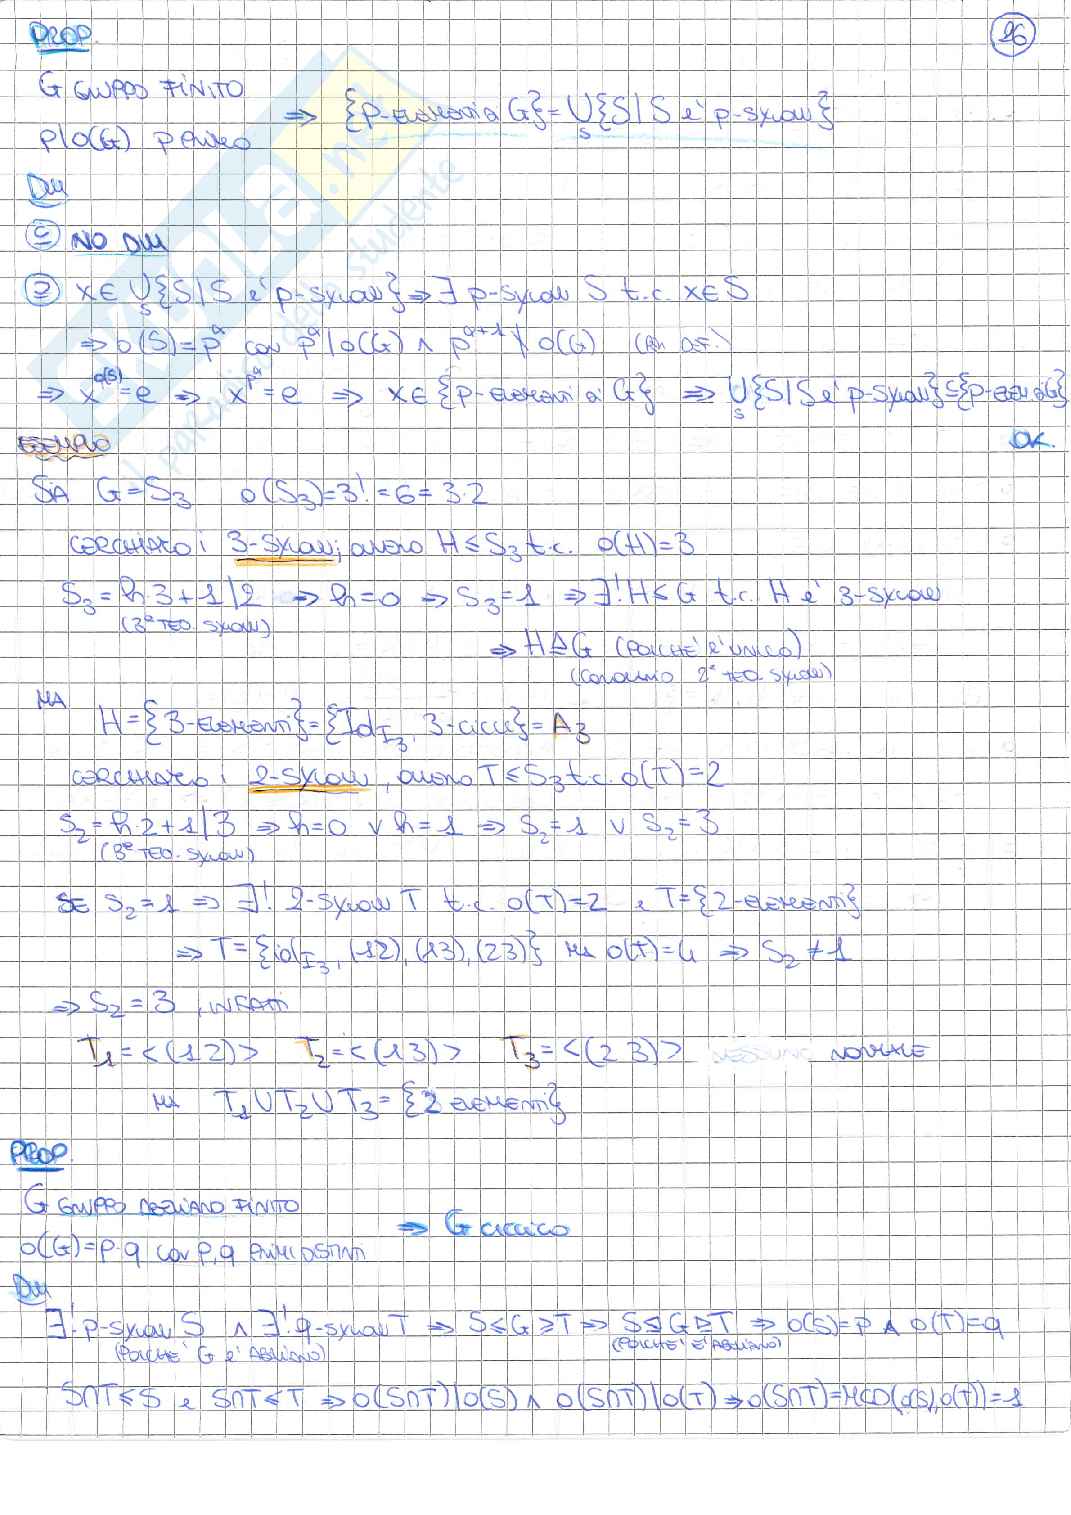 PROP. 26
G GRUPPO FINITO
p|o(G) p PRIMO ⇒ {p-ELEMENTI di G} = ∪_S {S | S è p-SYLOW}
DIM
⊆ NO DIM
⊇ x ∈ ∪_S {S | S è p-SYLOW} ⇒ ∃ p-SYLOW S t.c. x ∈ S
⇒ o(S) = p^a con p^a | o(G) ∧ p^{a+1} ∤ o(G) (PER DEF.)
⇒ x^{o(S)} = e ⇒ x^{p^a} = e ⇒ x ∈ {p-ELEMENTI di G} ⇒ ∪_S {S | S è p-SYLOW} ⊆ {p-ELEM di G}
OK.
ESEMPIO
SIA G = S_3 o(S_3) = 3! = 6 = 3·2
CERCHIAMO i 3-SYLOW, ovvero H ≤ S_3 t.c. o(H) = 3
S_3 = h·3+1 | 2 ⇒ h = 0 ⇒ S_3 = 1 ⇒ ∃! H ≤ G t.c. H è 3-SYLOW
(3° TEO. SYLOW)
⇒ H ⊴ G (POICHÉ È UNICO)
(COROLLARIO 2° TEO. SYLOW)
MA
H = {3-ELEMENTI} = {Id_{I_3}, 3-CICLI} = A_3
CERCHIAMO i 2-SYLOW, ovvero T ≤ S_3 t.c. o(T) = 2
S_2 = h·2+1 | 3 ⇒ h = 0 ∨ h = 1 ⇒ S_2 = 1 ∨ S_2 = 3
(3° TEO. SYLOW)
SE S_2 = 1 ⇒ ∃! 2-SYLOW T t.c. o(T) = 2 e T = {2-ELEMENTI}
⇒ T = {id_{I_3}, (12), (13), (23)} MA o(T) = 4 ⇒ S_2 ≠ 1
⇒ S_2 = 3, INFATTI
T_1 = <(1 2)> T_2 = <(1 3)> T_3 = <(2 3)> NESSUNO NORMALE
MA T_1 ∪ T_2 ∪ T_3 = {2 ELEMENTI}
PROP.
G GRUPPO ABELIANO FINITO
o(G) = p·q con p,q PRIMI DISTINTI ⇒ G CICLICO
DIM
∃! p-SYLOW S ∧ ∃! q-SYLOW T ⇒ S ≤ G ≥ T ⇒ S ⊴ G ⊵ T ⇒ o(S) = p ∧ o(T) = q
(POICHÉ G è ABELIANO) (POICHÉ È ABELIANO)
S∩T ≤ S e S∩T ≤ T ⇒ o(S∩T) | o(S) ∧ o(S∩T) | o(T) ⇒ o(S∩T) = MCD(o(S), o(T)) = 1